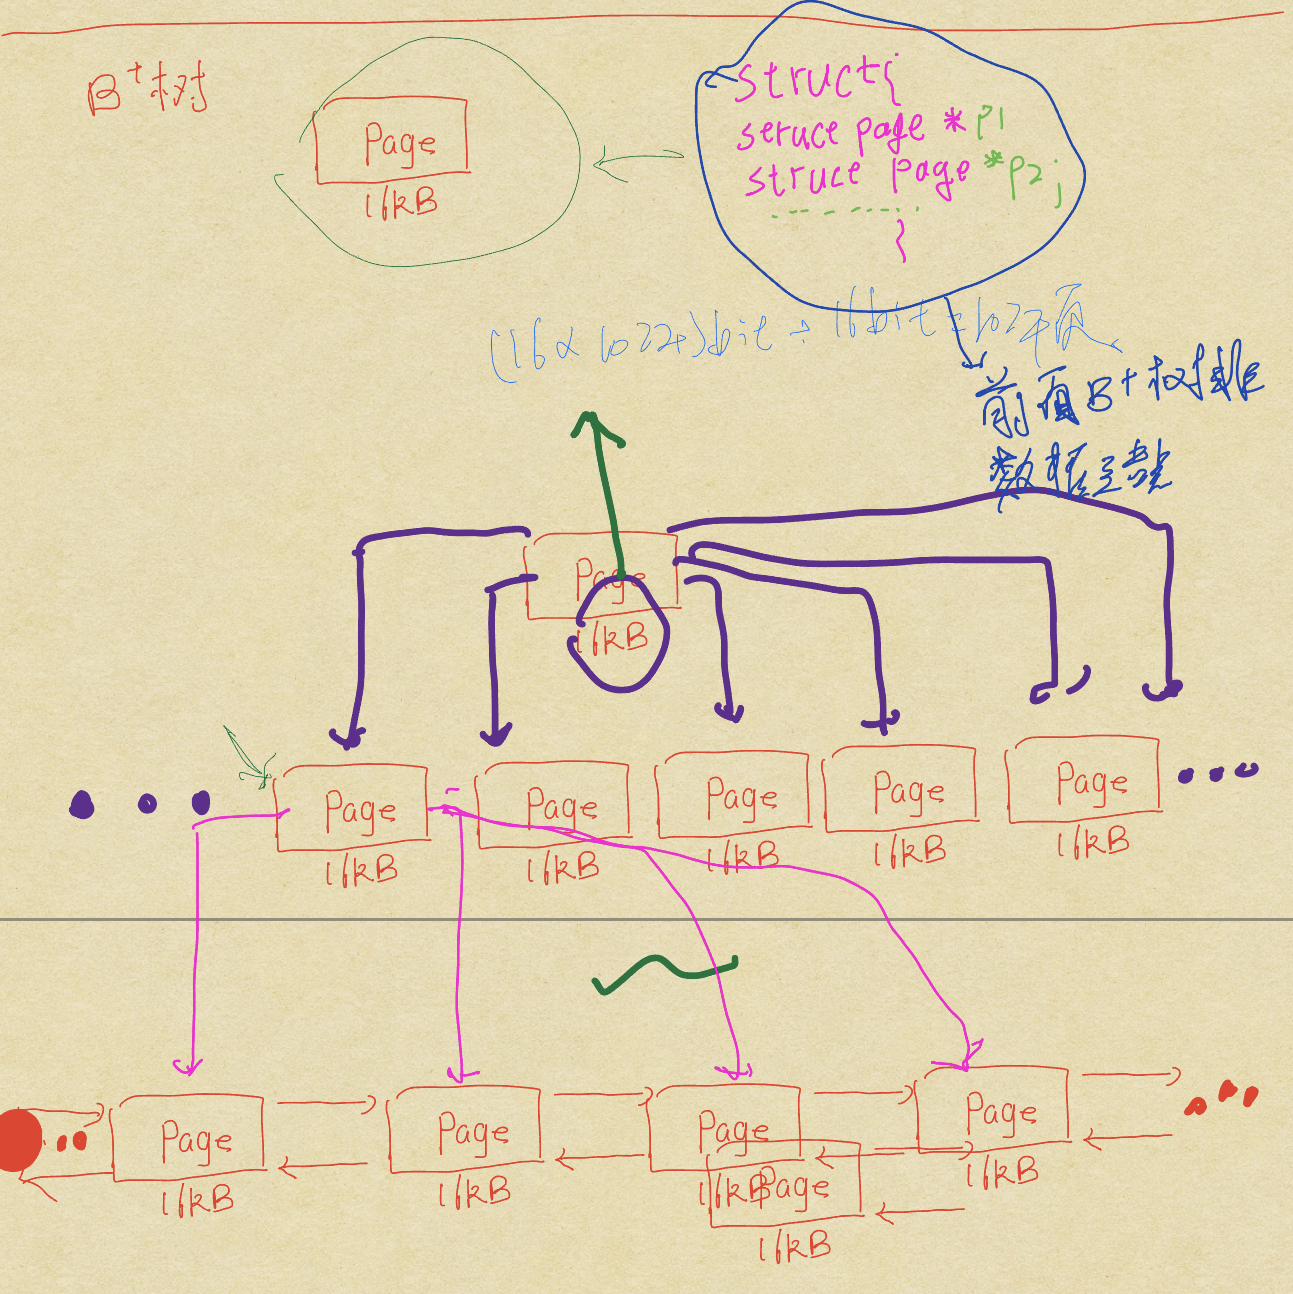 B+树
Page
16kB
struct{
seruce page *p1
struce page *p2;
}
(16x1024)bit ÷ 16bit = 1024页
前面B+树排
数据
Page
16kB
Page
16kB
Page
16kB
Page
16kB
Page
16kB
Page
16kB
Page
16kB
Page
16kB
Page
16kB
Page
16kB
Page
16kB